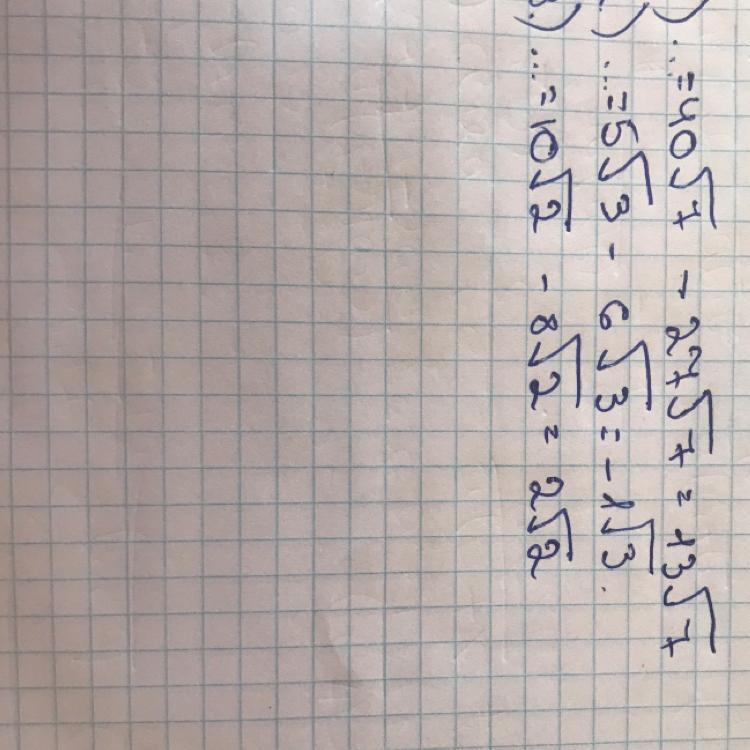 ) ...=40√7 - 27√7 = 13√7
.) ...=5√3 - 6√3 = -1√3.
) ...=10√2 - 8√2 = 2√2